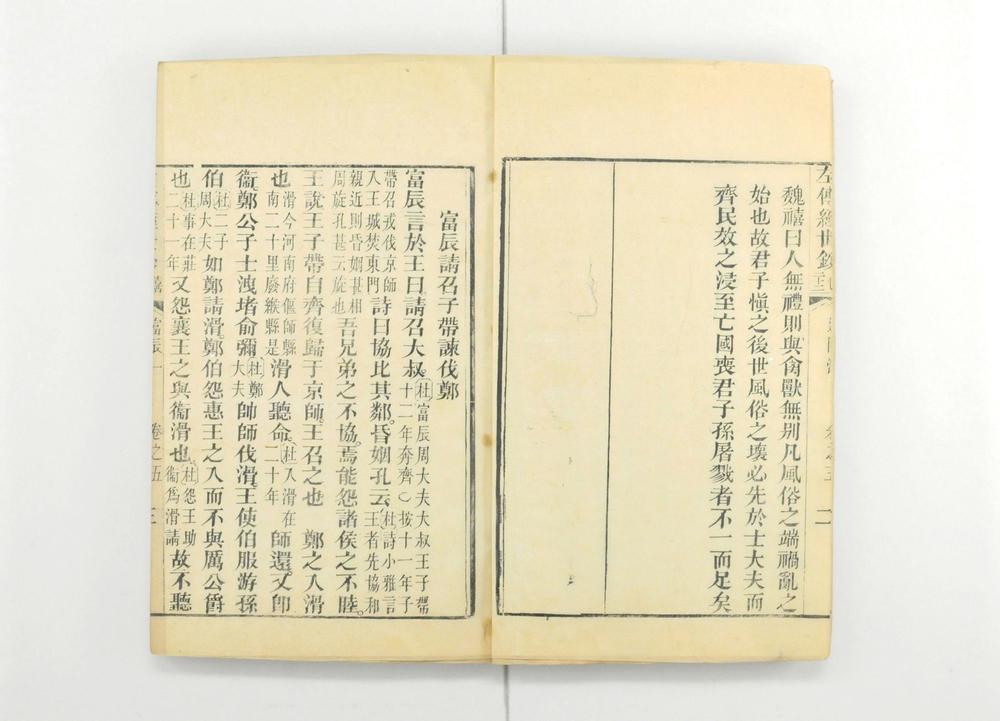 左傳經世鈔
卷之五 二
魏禧曰人無禮則與禽獸無别凡風俗之端禍亂之
始也故君子慎之後世風俗之壞必先於士大夫而
齊民效之浸至亡國喪君子孫屠戮者不一而足矣
富辰請召子帶諫伐鄭
富辰言於王曰請召大叔杜富辰周大夫大叔王子帶十二年奔齊〇按十一年子
帶召戎伐京師入王城焚東門詩曰協比其鄰昏姻孔云杜詩小雅言王者先協和
親近則昏姻甚相周旋孔甚云旋也吾兄弟之不協焉能怨諸侯之不睦
王說王子帶自齊復歸于京師王召之也 鄭之入滑
也滑今河南府偃師縣南二十里廢緱縣是滑人聽命杜入滑在二十年師還又卽
衞鄭公子士洩堵俞彌杜鄭大夫帥師伐滑王使伯服游孫
伯杜二子周大夫如鄭請滑鄭伯怨惠王之入而不與厲公爵
也杜事在莊二十一年又怨襄王之與衞滑也杜怨王助衞爲滑請故不聽
富辰一 卷之五 三